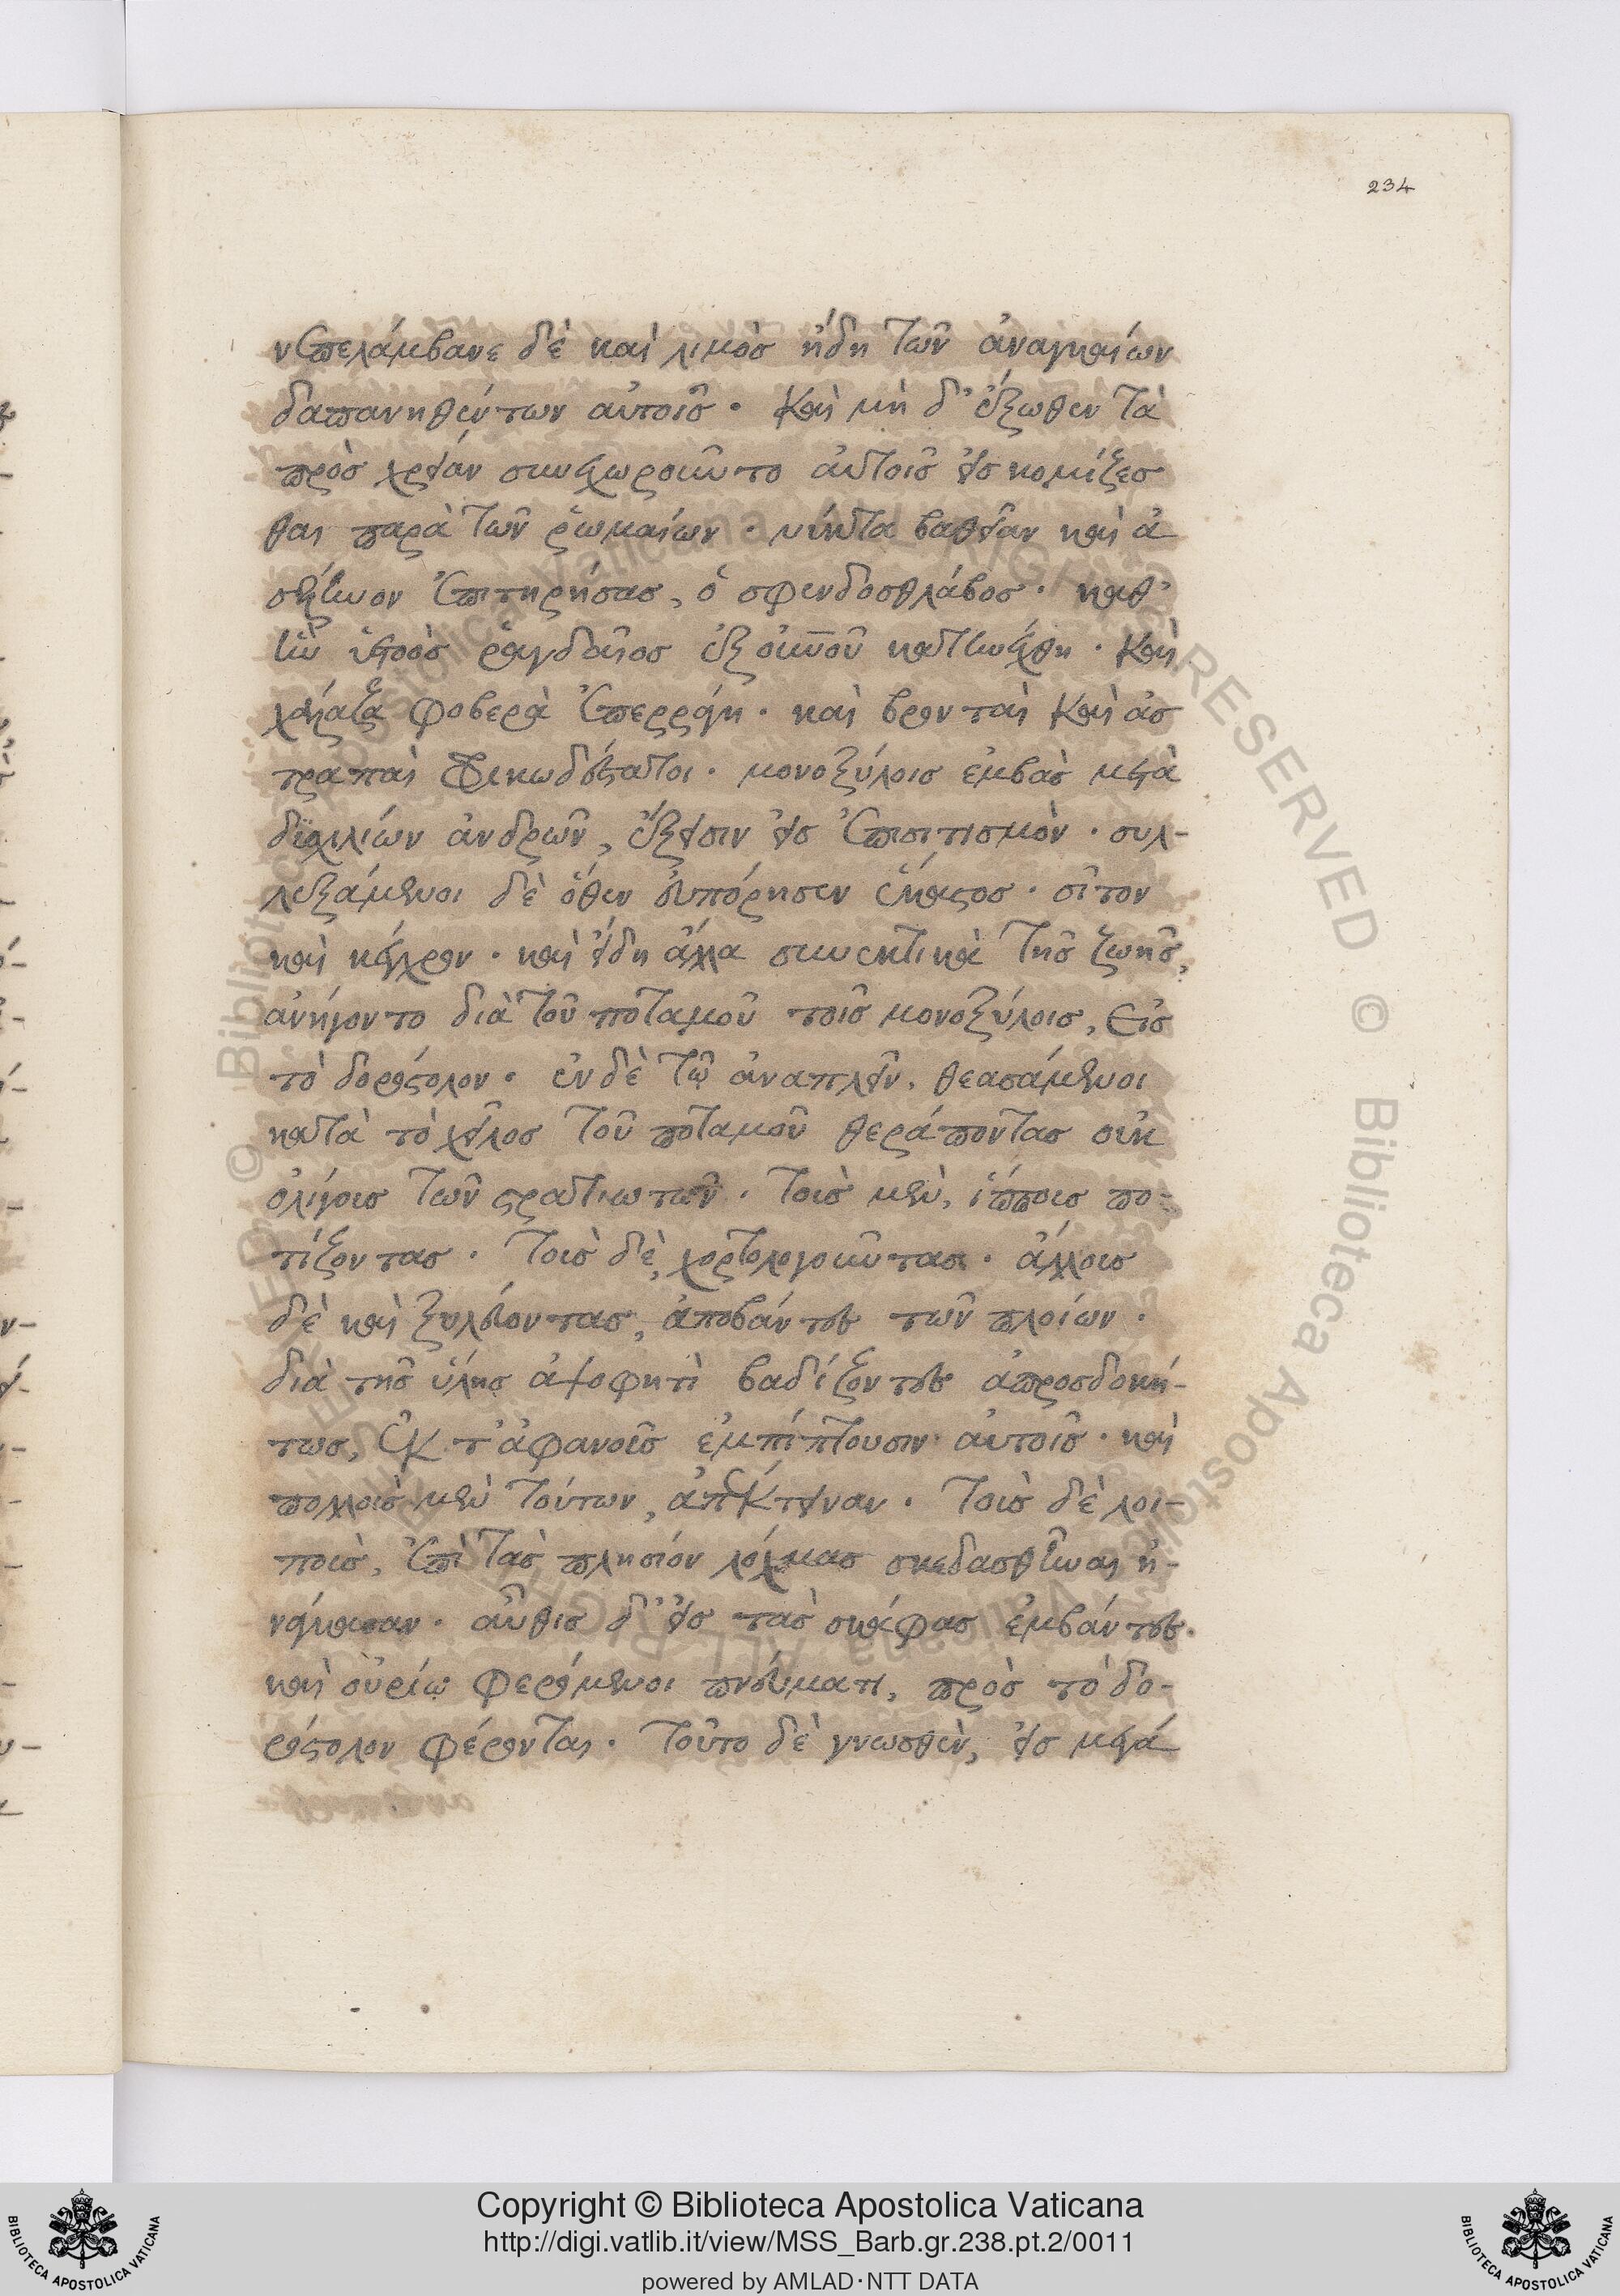 234
ν ἐπελάμβανε δὲ καὶ λιμὸσ ἤδη τῶν ἀναγκαίων
δαπανηθέντων αὐτοῖσ· καὶ μὴ δ' ἔξωθεν τὰ
πρὸσ χρείαν συγχωροῦντο αὐτοῖσ εἰσκομίζεσ
θαι παρὰ τῶν ῥωμαίων· νύκτα βαθεῖαν καὶ ἀ
σέληνον ἐπιτηρήσασ, ὁ σφενδοσθλάβοσ· καθ'
ἣν ὑετὸσ ῥαγδαῖοσ ἐξ οὐρανοῦ κατηνέχθη· καὶ
χάλαζα φοβερὰ ἐπερράγη· καὶ βρονταὶ καὶ ἀσ
τραπαὶ φρικωδέσταται· μονοξύλοισ ἐμβὰσ μετὰ
δισχιλίων ἀνδρῶν, ἔξεισιν εἰσ ἐπισιτισμὸν· συλ-
λεξάμενοι δὲ ὅθεν εὐπόρησεν ἕκαστοσ· σῖτον
καὶ κέγχρον· καὶ εἴδη ἄλλα συνεκτικὰ τῆσ ζωῆσ,
ἀνήγοντο διὰ τοῦ ποταμοῦ τοῖσ μονοξύλοισ, εἰσ
τὸ δορόστολον· ἐν δὲ τῷ ἀναπλεῖν, θεασάμενοι
κατὰ τὸ χεῖλοσ τοῦ ποταμοῦ θεράποντασ οὐκ
ὀλίγουσ τῶν στρατιωτῶν· τοὺσ μὲν, ἵππουσ πο-
τίζοντασ· τοὺσ δὲ, χορτολογοῦντασ· ἄλλουσ
δὲ καὶ ξυλεύοντασ, ἀποβάντεσ τῶν πλοίων·
διὰ τῆσ ὕλησ ἀψοφητὶ βαδίζοντεσ ἀπροσδοκή-
τωσ, ἐκ τ' ἀφανοῦσ ἐμπίπτουσιν αὐτοῖσ· καὶ
πολλοὺσ μὲν τούτων, ἀπέκτειναν· τοὺσ δὲ λοι-
ποὺσ, ἐπὶ τὰσ πλησίον λόχμασ σκεδασθῆναι ἠ-
νάγκασαν· αὖθισ δ' εἰσ τὰσ σκάφασ ἐμβάντεσ·
καὶ οὐρίῳ φερόμενοι πνεύματι, πρὸσ τὸ δο-
ρόστολον φέρονται· τοῦτο δὲ γνωσθὲν, εἰσ μεγά
Copyright © Biblioteca Apostolica Vaticana
http://digi.vatlib.it/view/MSS_Barb.gr.238.pt.2/0011
powered by AMLAD·NTT DATA